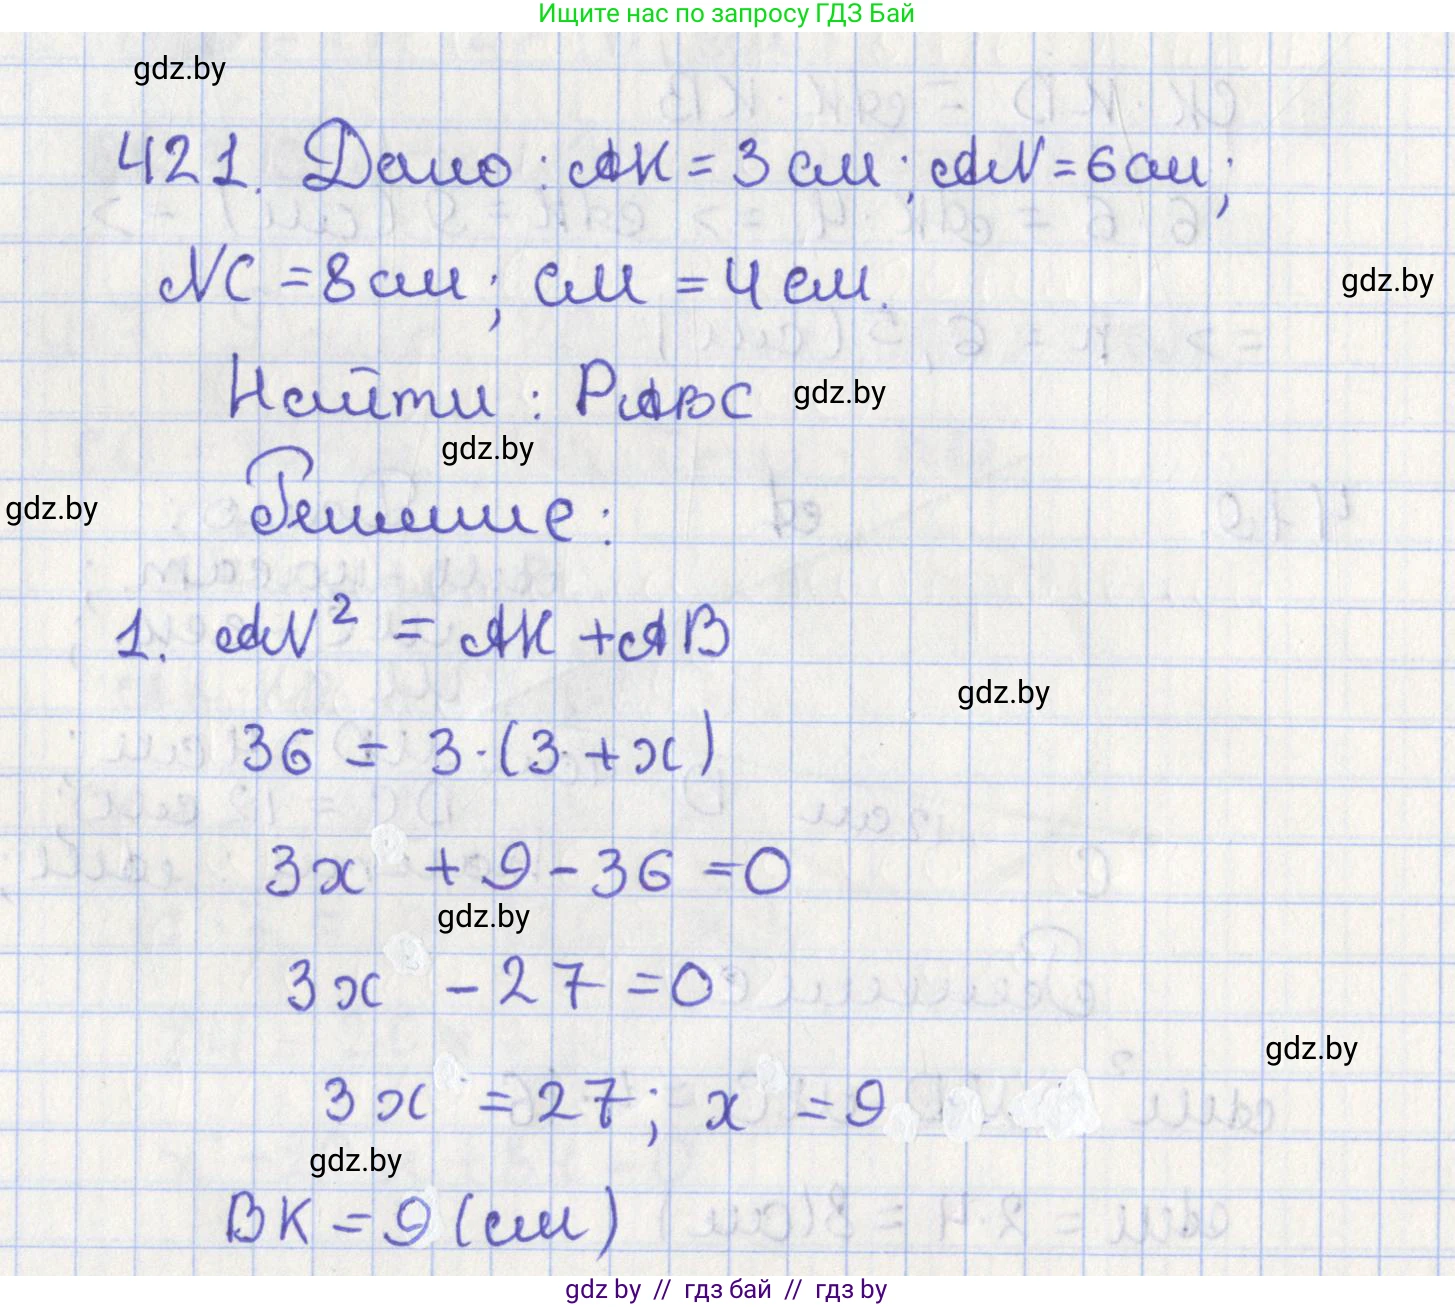 Ищите нас по запросу ГДЗ Бай
gdz.by
421. Дано: AK = 3 см; AN = 6 см;
NC = 8 см; CM = 4 см.
gdz.by
Найти: PABC
gdz.by
gdz.by
gdz.by
Решение:
1. AN² = AK + AB
gdz.by
36 = 3·(3 + x)
3x + 9 - 36 = 0
gdz.by
3x - 27 = 0
gdz.by
3x = 27; x = 9
gdz.by
BK = 9 (см)
gdz by // гдз бай // гдз by